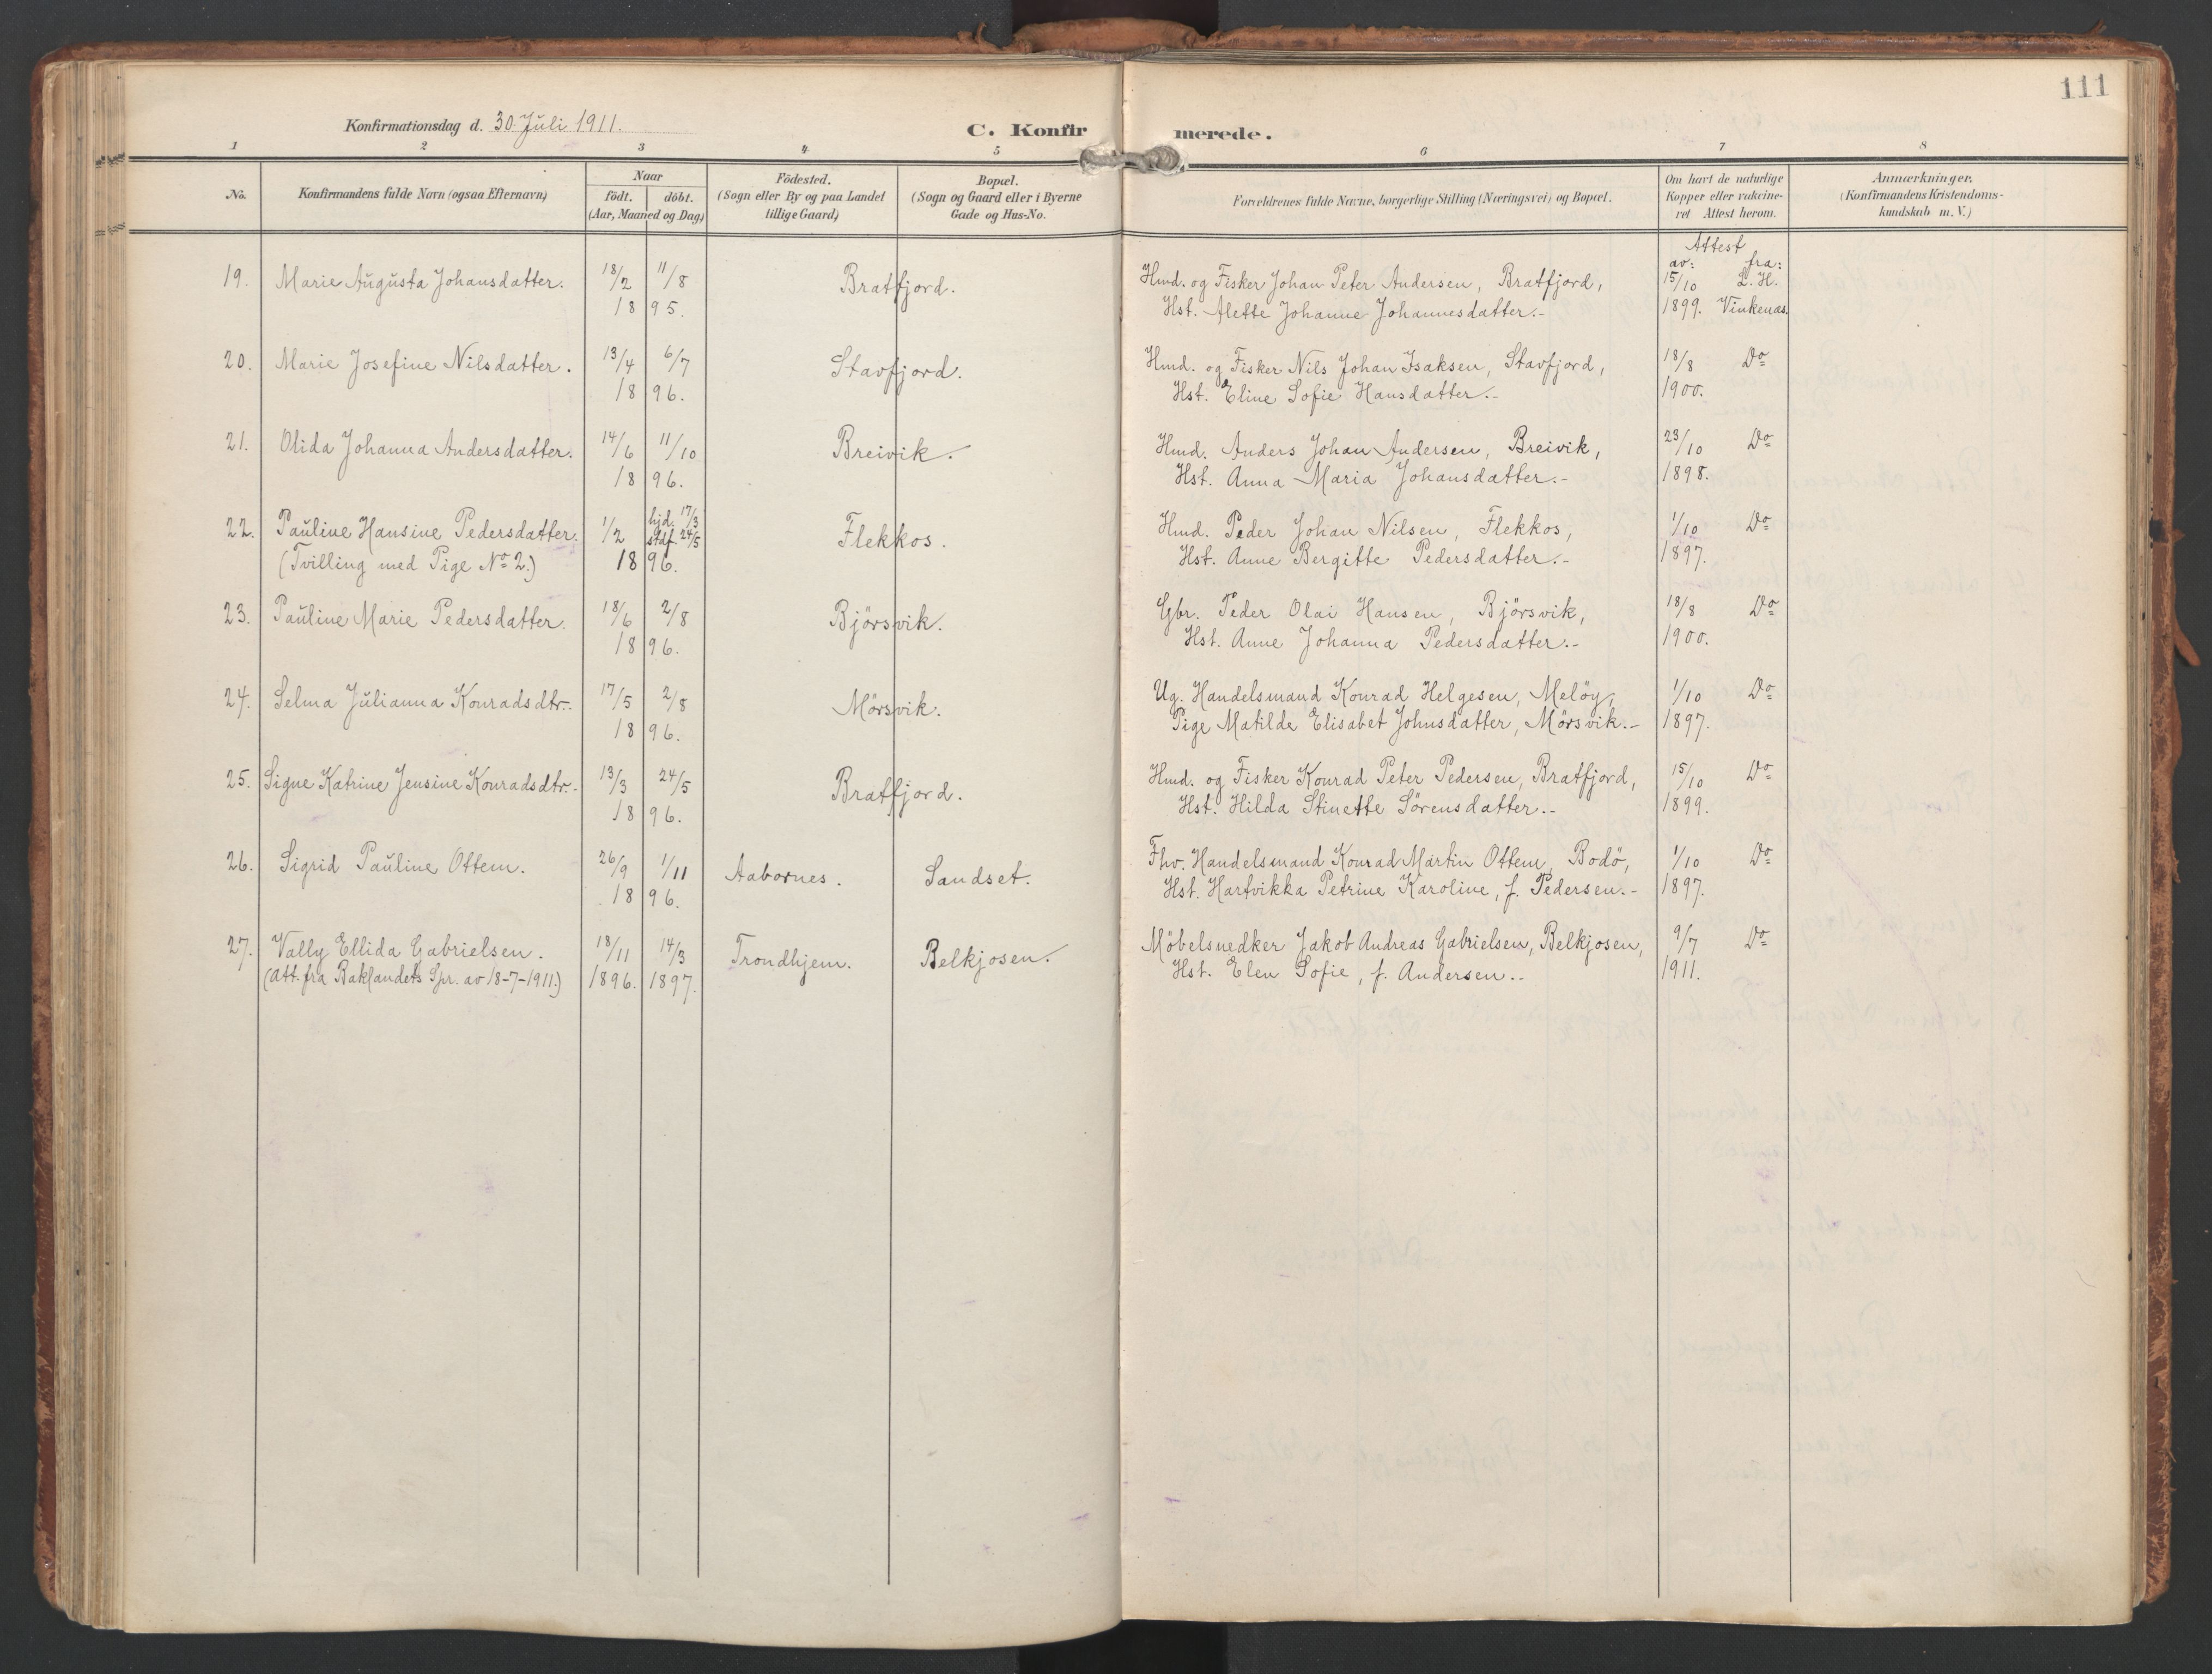 111
Konfirmationsdag d. 30 Juli 1911.
C. Konfirmerede.
1 2 3 4 5 6 7 8
No.
Konfirmandens fulde Navn (ogsaa Efternavn)
Naar
födt. döbt.
(Aar, Maaned og Dag)
Födested.
(Sogn eller By og paa Landet
tillige Gaard)
Bopæl.
(Sogn og Gaard eller i Byerne
Gade og Hus-No.
Forældrenes fulde Navne, borgerlige Stilling (Næringsvei) og Bopæl.
Om havt de naturlige
Kopper eller vakcine-
ret Attest herom.
Anmærkninger.
(Konfirmandens Kristendoms-
kundskab m. V.)
Attest
av: fra:
19. Marie Augusta Johansdatter. 18/2 11/8 Bratfjord. Hmd. og Fisker Johan Peter Andersen, Bratfjord, 15/10 L. H.
1895. Hst. Alette Johanne Johannesdatter.- 1899. Vinkenæs.
20. Marie Josefine Nilsdatter. 13/4 6/7 Stavfjord. Hmd. og Fisker Nils Johan Isaksen, Stavfjord, 18/8 Do
1896. Hst. Eline Sofie Hansdatter.- 1900.
21. Olida Johanna Andersdatter. 14/6 11/10 Breivik. Hmd. Anders Johan Andersen, Breivik, 23/10 Do
1896. Hst. Anna Maria Johansdatter.- 1898.
22. Pauline Hansine Pedersdatter. 1/2 hjd. 17/3 stdf. 24/5 Flekkos. Hmd. Peder Johan Nilsen, Flekkos, 1/10 Do
(Tvilling med Pige No 2.) 1896. Hst. Anne Bergitte Pedersdatter.- 1897.
23. Pauline Marie Pedersdatter. 18/6 2/8 Björsvik. Gbr. Peder Olai Hansen, Björsvik, 18/8 Do
1896. Hst. Anne Johanna Pedersdatter.- 1900.
24. Selma Julianna Konradsdtr.- 17/5 2/8 Mörsvik. Ug. Handelsmand Konrad Helgesen, Melöy, 1/10 Do
1896. Pige Matilde Elisabet Johnsdatter, Mörsvik.- 1897.
25. Signe Katrine Jensine Konradsdtr.- 13/3 24/5 Bratfjord. Hmd. og Fisker Konrad Peter Pedersen, Bratfjord, 15/10 Do
1896. Hst. Hilda Stinette Sörensdatter.- 1899.
26. Sigrid Pauline Ottem. 26/9 1/11 Aabornes. Sandset. Fhv. Handelsmand Konrad Martin Ottem, Bodö, 1/10 Do
1896. Hst. Hartvikka Petrine Karoline, f. Pedersen.- 1897.
27. Vally Ellida Gabrielsen. 18/11 14/3 Trondhjem. Belkjosen. Möbelsnedker Jakob Andreas Gabrielsen, Belkjosen, 9/7 Do
(Att. fra Baklandets Spr. av 18-7-1911.) 1896. 1897. Hst. Elen Sofie, f. Andersen.- 1911.